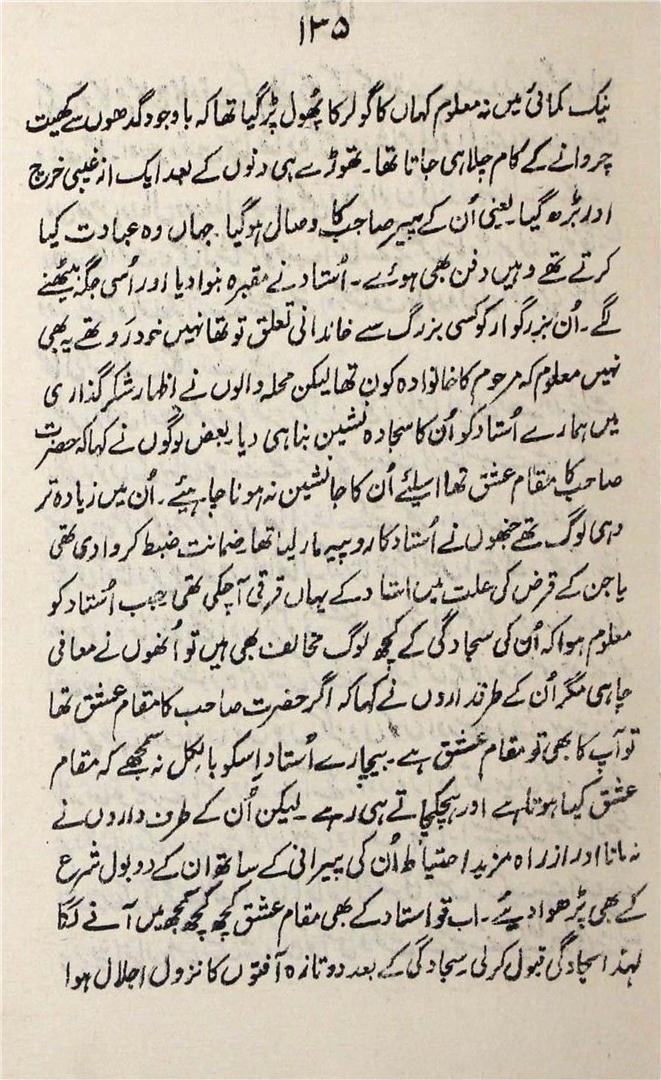 ۱۳۵
نیک کمائی میں نہ معلوم کہاں کا گولر کا پھول پڑ گیا تھا کہ باوجود گدھوں سے کھیت
چروانے کے کام چلا ہی جاتا تھا۔ تھوڑے ہی دنوں کے بعد ایک از غیبی خرچ
اور بڑھ گیا یعنی اُن کے پیر صاحب کا وصال ہو گیا۔ جہاں وہ عبادت کیا
کرتے تھے وہیں دفن بھی ہوئے۔ اُستاد نے مقبرہ بنوا دیا اور اُسی جگہ بیٹھنے
لگے۔ اُن بزرگوار کو کسی بزرگ سے خاندانی تعلق تو تھا نہیں خود رَو تھے یہ بھی
نہیں معلوم کہ مرحوم کا خانوادہ کون تھا لیکن محلہ والوں نے اظہار شکر گذاری
میں ہمارے اُستاد کو اُن کا سجادہ نشین بنا ہی دیا۔ بعض لوگوں نے کہا کہ حضرت
صاحب کا مقام عشق تھا اسلئے اُن کا جانشین نہ ہونا چاہیئے۔ اُن میں زیادہ تر
وہی لوگ تھے جنھوں نے اُستاد کا روپیہ مار لیا تھا۔ ضمانت ضبط کروا دی تھی
یا جن کے قرض کی علت میں استاد کے یہاں قرقی آچکی تھی۔ جب اُستاد کو
معلوم ہوا کہ اُن کی سجادگی کے کچھ لوگ مخالف بھی ہیں تو اُنھوں نے معافی
چاہی مگر اُن کے طرفداروں نے کہا کہ اگر حضرت صاحب کا مقام عشق تھا
تو آپ کا بھی تو مقام عشق ہے۔ بیچارے اُستاد اِسکو بالکل نہ سمجھے کہ مقام
عشق کیا ہوتا ہے اور ہچکچاتے ہی رہے۔ لیکن اُن کے طرف داروں نے
نہ مانا اور از راہ مزید احتیاط اُن کی پیرانی کے ساتھ ان کے دو بول شرع
کے بھی پڑھوا دیئے۔ اب تو استاد کے بھی مقام عشق کچھ کچھ سمجھ میں آنے لگا
لہٰذا سجادگی قبول کر لی۔ سجادگی کے بعد دو تازہ آفتوں کا نزول اجلال ہوا